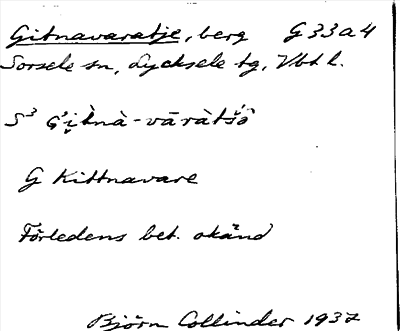 Gitnavaratje, berg G 33 a 4
Sorsele sn, Lycksele tg, Vbt l.
S³ G̣'i̮t̀nà-vāràt́š́ō̂
G Kittnavare
Förledens bet. okänd
Björn Collinder 1937